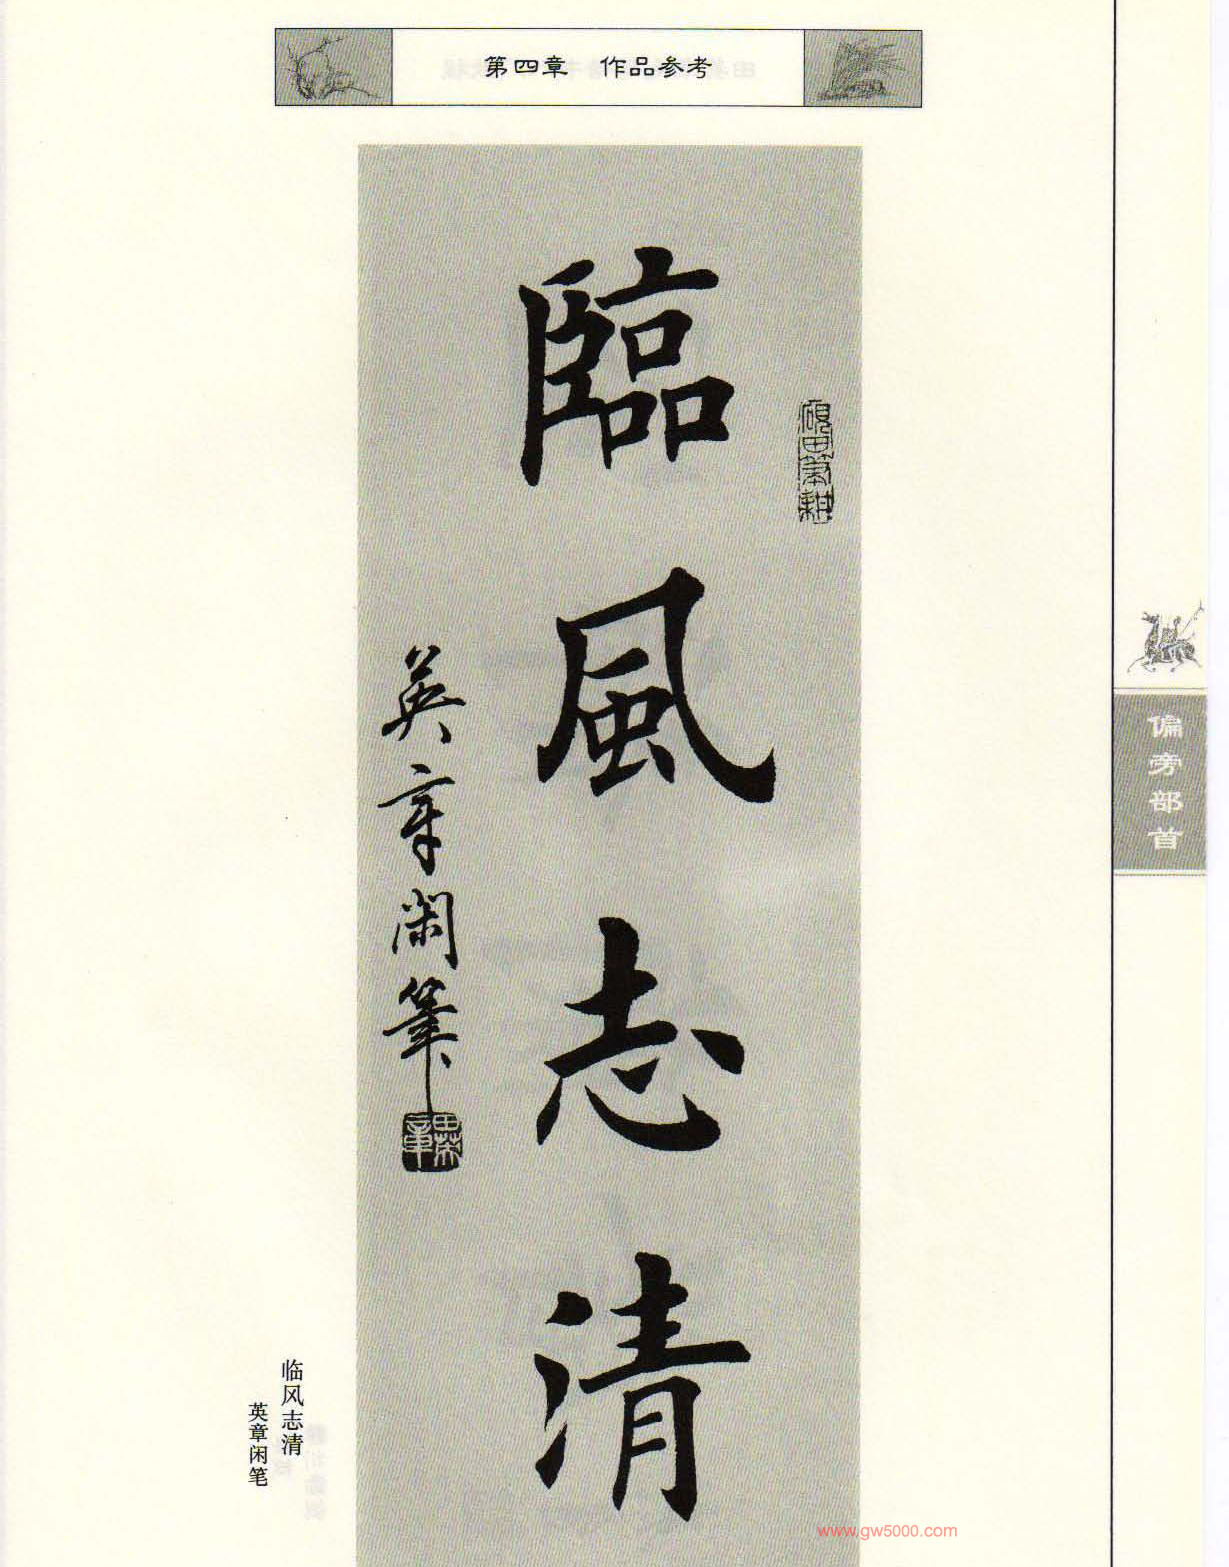 第四章 作品参考
臨風志清
硯田筆耕
英章閑筆
田英章
偏旁部首
临风志清
英章闲笔
www.gw5000.com